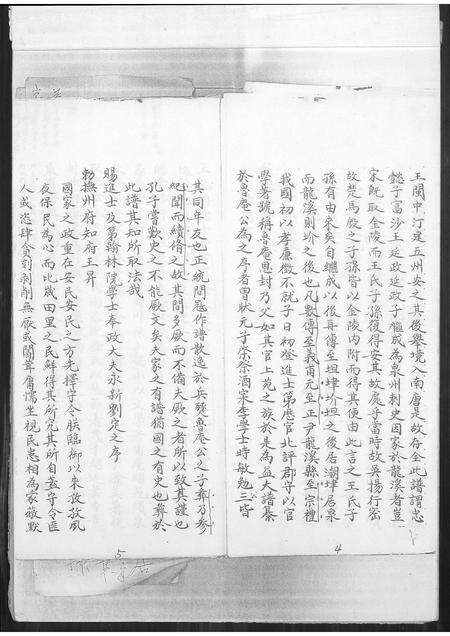 王閩中汀建五州安之其後舉境入南唐是故存全此譜謂忠
懿子富沙王延政延政子繼成為泉州刺史因家於龍溪者豈
宋既取金陵而王氏子孫復得安其故處乎當時故吳揚行密
故楚馬殷之子孫皆以金陵內附而得其便由此言之王氏子
孫有由來矣自繼成以後再傳至坦坦之後居潮埤居泉
而龍溪則玠之後也凡數傳至義甫元至正尹龍溪縣至宗禮
我國初以孝廉徵不就子曰初登進士第歷官北評郡守以官
學著號稱魯庵恩封乃父如其官上苑之族於是為益大譜纂
於魯庵公為之序者曾狀元子棨祭酒宋李學士時敏勉三皆
4
其同年友也正統間冠作譜散逸於兵燹魯庵公之子彝乃參
紀聞而續脩之故其間多厥而不備夫厥之者所以致其謹也
孔子嘗歎史之不能厥文矣夫家之有譜猶國之有史也彝於
此譜其知所取法哉
賜進士及第翰林院學士奉政大夫永新劉定之序
勅撫州府知府王昇
國家之政重在安民安民之方先擇守令朕臨御以來孜孜夙
夜保民為心而比歲田里之民鮮得其所究其所自蓋守令匪
人或恣肆貪刻剝削無厭或闒茸庸懦坐視民患相為蒙蔽默
5